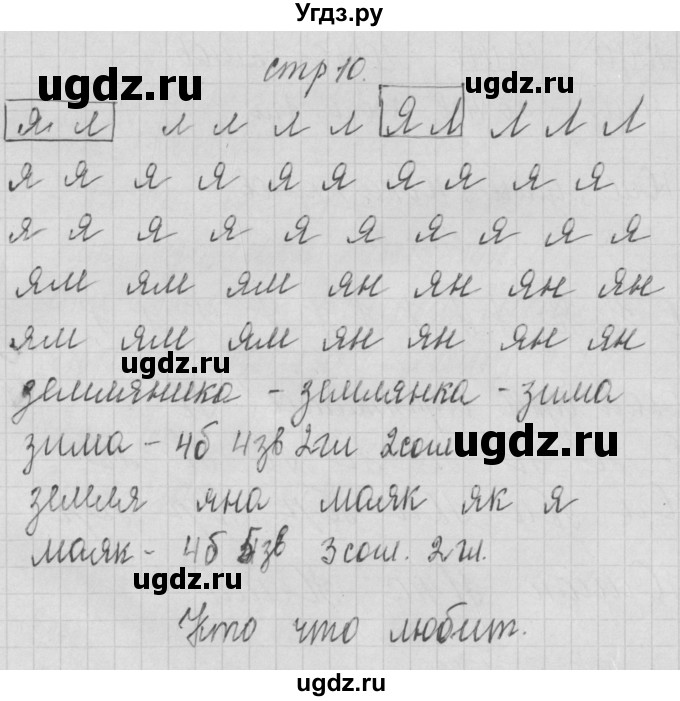 Угдз.ру
стр 10.
ugdz.ru
ugdz.ru
я л л л л л Я Л Л Л Л
я я я я я я я я я я
я я я я я я я я я я
ям ям ям ян ян ян ян
ям ям ям ян ян ян ян
ugdz.ru
земляника - землянка - зима
зима - 4б 4зв 2гл 2согл
ugdz.ru
земля яна маяк як я
маяк - 4б 5зв 3согл. 2гл.
ugdz.ru
Кто что любит.
ugdz.ru